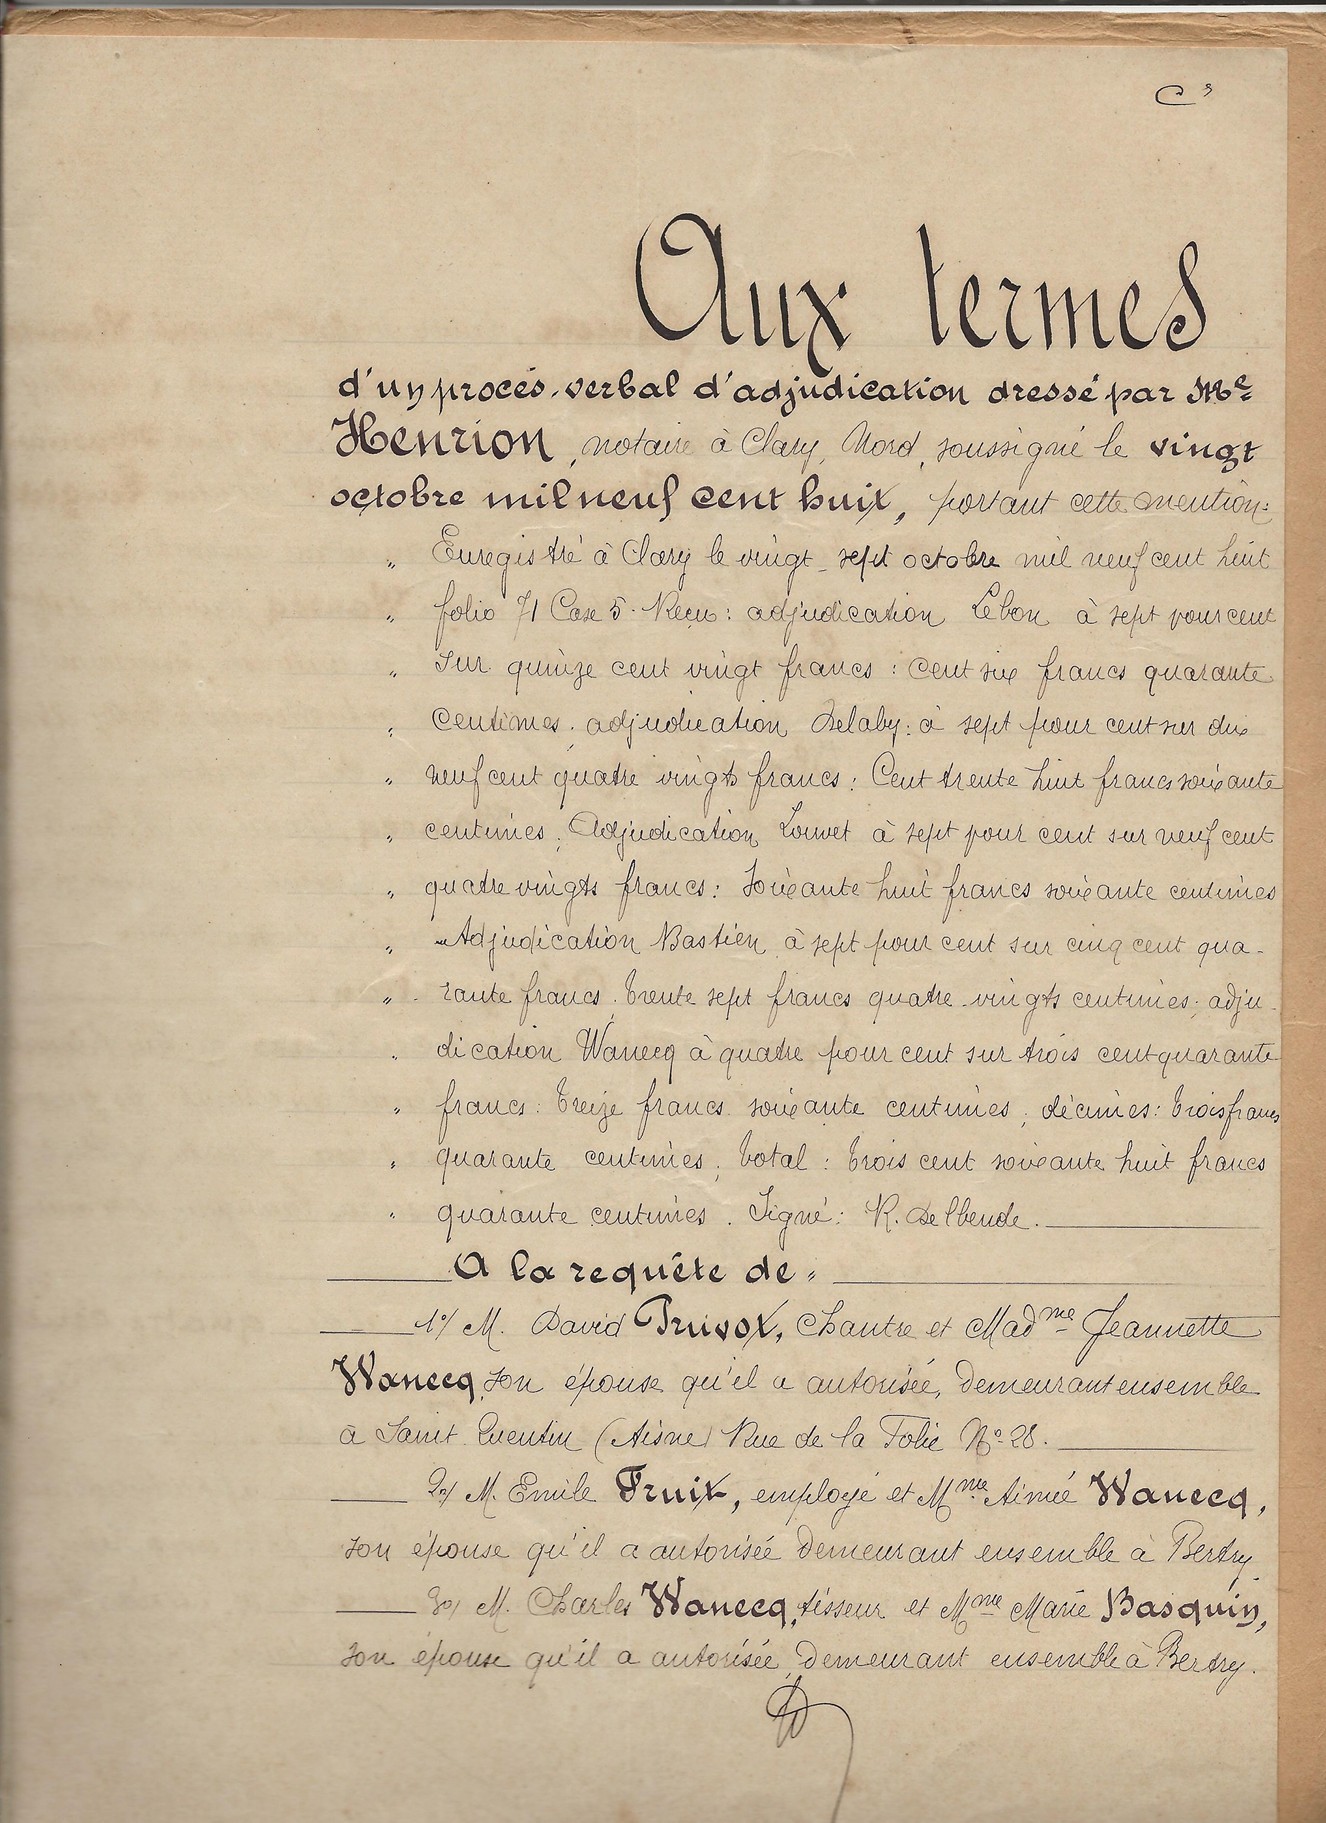 Aux termes
d'un procès-verbal d'adjudication dressé par Me
Henrion, notaire à Clary, Nord, soussigné le vingt
octobre mil neuf cent huit, portant cette mention:
" Enregistré à Clary le vingt-sept octobre mil neuf cent huit
" folio 71 Case 5. Reçu: adjudication Lebon à sept pour cent
" sur quinze cent vingt francs: Cent six francs quarante
" Centimes; adjudication Delaby: à sept pour cent sur dix
" neuf cent quatre vingts francs: Cent trente huit francs soixante
" centimes; Adjudication Louvet à sept pour cent sur neuf cent
" quatre vingts francs: Soixante huit francs soixante centimes
" Adjudication Bastien à sept pour cent sur cinq cent qua-
" rante francs: Trente sept francs quatre-vingts centimes; adju-
" dication Wanecq à quatre pour cent sur trois cent quarante
" francs: Treize francs soixante centimes; décimes: Trois francs
" quarante centimes; Total: Trois cent soixante huit francs
" quarante centimes. Signé: R. Delbende.
A la requête de:
1°/ M. David Truivox, Chantre et Madme Jeannette
Wanecq, son épouse qu'il a autorisée, demeurant ensemble
à Saint Quentin (Aisne) Rue de la Folie No 28.
2°/ M. Emile Fruit, employé et Mme Aimée Wanecq,
son épouse qu'il a autorisée demeurant ensemble à Bertry
3°/ M. Charles Wanecq, tisseur et Mme Marie Basquin,
son épouse qu'il a autorisée, demeurant ensemble à Bertry.